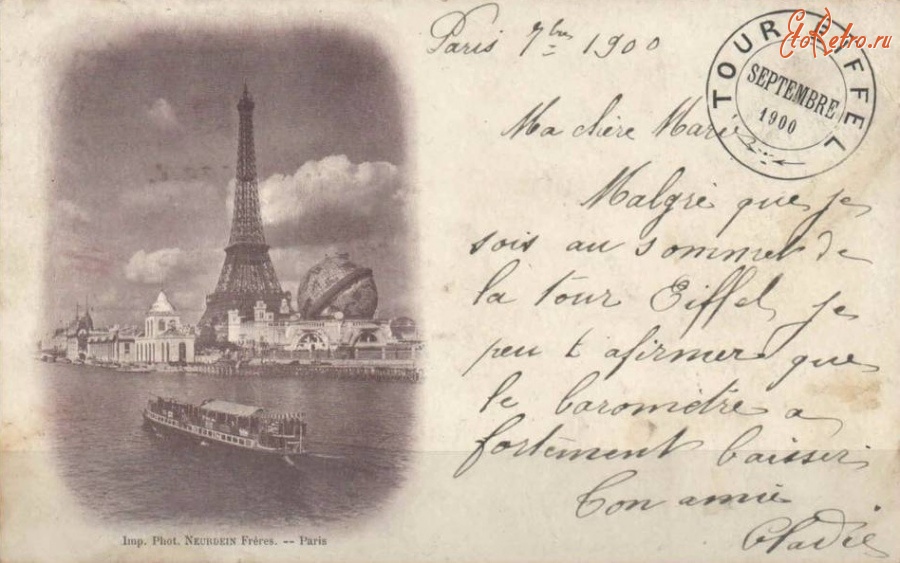 EtoRetro.ru
Paris 7bre 1900
TOUR EIFFEL
SEPTEMBRE
1900
Ma chère Marie
Malgré que je
sois au sommet de
la tour Eiffel je
peu t afirmer que
le baromètre a
fortement baisser
Ton amie
Imp. Phot. NEURDEIN Frères. -- Paris